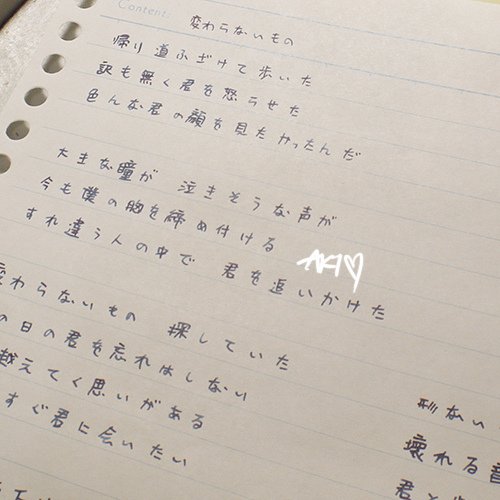 Content:
変わらないもの
帰り道ふざけて歩いた
訳も無く君を怒らせた
色んな君の顔を見たかったんだ
大きな瞳が 泣きそうな声が
今も僕の胸を締め付ける
すれ違う人の中で 君を追いかけた
AKI♡
変わらないもの 探していた
の日の君を忘れはしない
越えてく思いがある
すぐ君に会いたい
形ない
壊れる音
君と歩